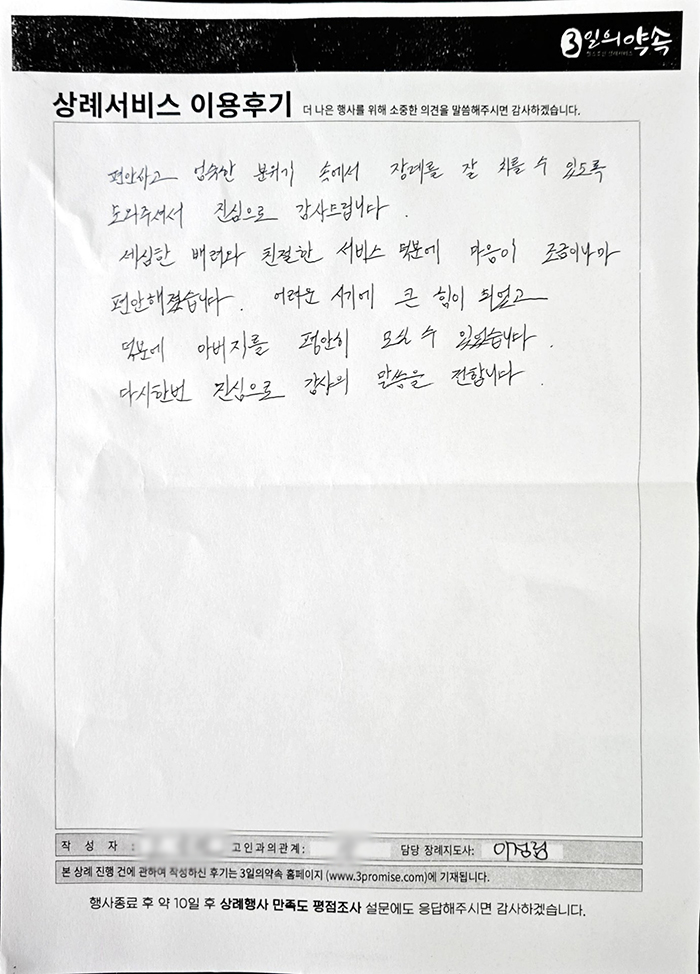 3일의약속
상례서비스 이용후기 더 나은 행사를 위해 소중한 의견을 말씀해주시면 감사하겠습니다.
편안하고 엄숙한 분위기 속에서 장례를 잘 치를 수 있도록
도와주셔서 진심으로 감사드립니다.
세심한 배려와 친절한 서비스 덕분에 마음이 조금이나마
편안해졌습니다. 어려운 시기에 큰 힘이 되었고
덕분에 아버지를 평안히 모실 수 있었습니다.
다시한번 진심으로 감사의 말씀을 전합니다.
작 성 자 : 고인과의관계: 담당 장례지도사: 이정림
본 상례 진행 건에 관하여 작성하신 후기는 3일의약속 홈페이지 (www.3promise.com)에 기재됩니다.
행사종료 후 약 10일 후 상례행사 만족도 평점조사 설문에도 응답해주시면 감사하겠습니다.